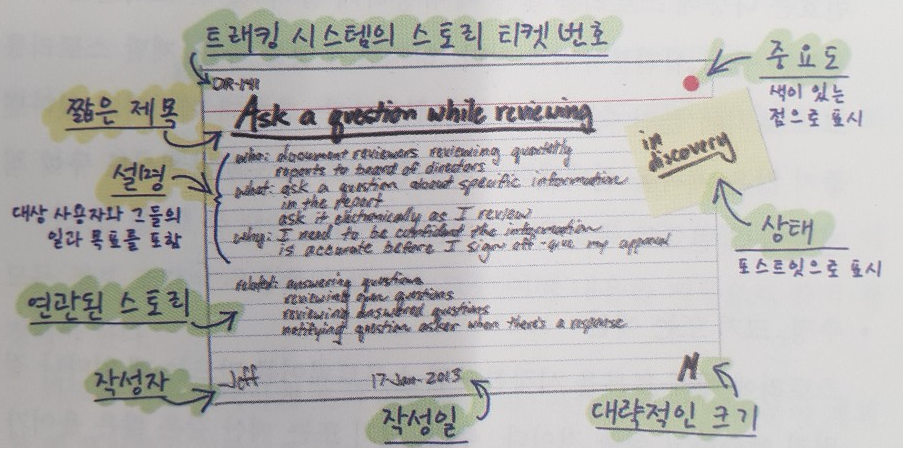 트래킹 시스템의 스토리 티켓 번호
중요도
색이 있는
점으로 표시
DR-1411
짧은 제목
Ask a question while reviewing
in
discovery
설명
대상 사용자와 그들의
일과 목표를 포함
who: document reviewers reviewing quarterly
reports to board of directors
what: ask a question about specific information
in the report
ask it electronically as I review
why: I need to be confident the information
is accurate before I sign off - give my approval
상태
포스트잇으로 표시
연관된 스토리
related: answering questions
reviewing open questions
reviewing answered questions
notifying question asker when there's a response
작성자
Jeff
17-Jan-2013
M
작성일
대략적인 크기